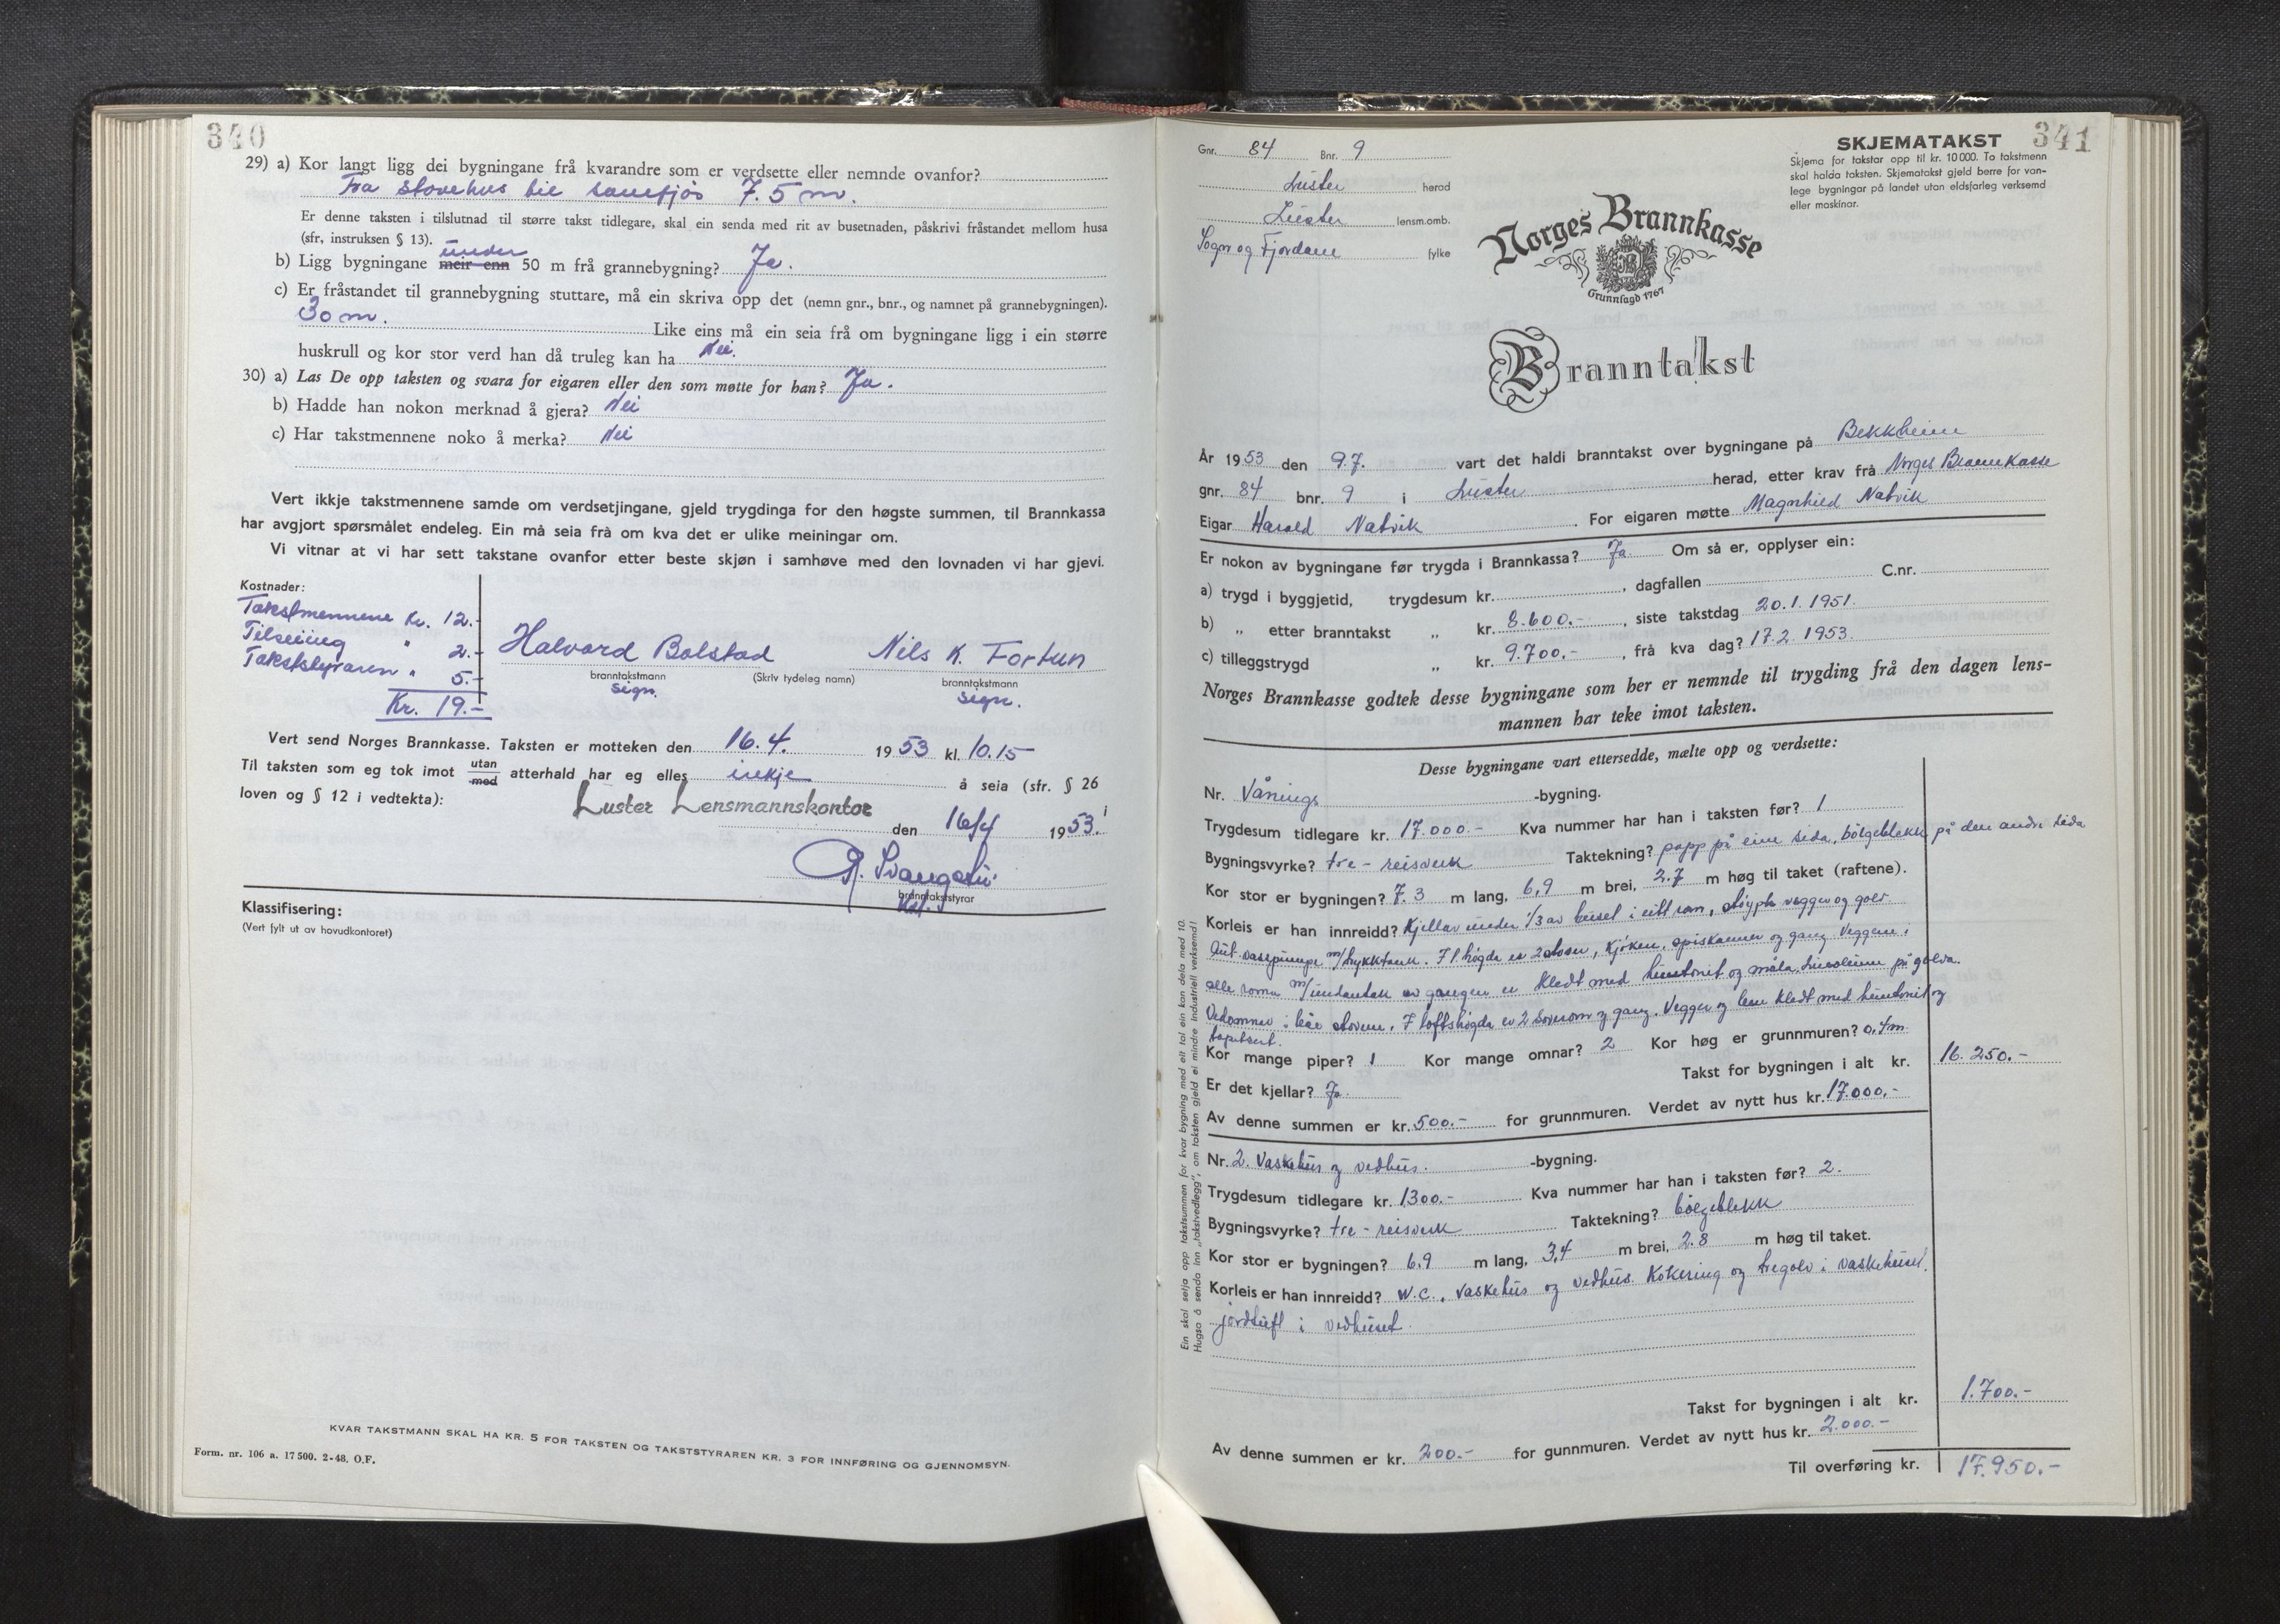 340
29) a) Kor langt ligg dei bygningane frå kvarandre som er verdsette eller nemnde ovanfor?
Fra stovehus til sauefjós 7.5 m.
Er denne taksten i tilslutnad til større takst tidlegare, skal ein senda med rit av busetnaden, påskrivi fråstandet mellom husa
(sfr, instruksen § 13).
under
b) Ligg bygningane meir enn 50 m frå grannebygning? Ja.
c) Er fråstandet til grannebygning stuttare, må ein skriva opp det (nemn gnr., bnr., og namnet på grannebygningen).
30 m. Like eins må ein seia frå om bygningane ligg i ein større
huskrull og kor stor verd han då truleg kan ha Nei.
30) a) Las De opp taksten og svara for eigaren eller den som møtte for han? Ja.
b) Hadde han nokon merknad å gjera? Nei
c) Har takstmennene noko å merka? Nei
Vert ikkje takstmennene samde om verdsetjingane, gjeld trygdinga for den høgste summen, til Brannkassa
har avgjort spørsmålet endeleg. Ein må seia frå om kva det er ulike meiningar om.
Vi vitnar at vi har sett takstane ovanfor etter beste skjøn i samhøve med den lovnaden vi har gjevi.
Kostnader:
Takstmennene kr. 12.-
Tilseiing " 2.-
Takststyraren " 5.-
Kr. 19.-
Halvard Bolstad Nils K. Fortun
branntakstmann (Skriv tydeleg namn) branntakstmann
sign. sign.
Vert send Norges Brannkasse. Taksten er motteken den 16.4. 1953 kl. 10.15
Til taksten som eg tok imot utan med atterhald har eg elles ikkje å seia (sfr. § 26 i
loven og § 12 i vedtekta):
Luster Lensmannskontor den 16/4 1953.
branntakststyrar
Klassifisering:
(Vert fylt ut av hovudkontoret)
KVAR TAKSTMANN SKAL HA KR. 5 FOR TAKSTEN OG TAKSTSTYRAREN KR. 3 FOR INNFØRING OG GJENNOMSYN.
Form. nr. 106 a. 17 500. 2-48. O.F.
341
Gnr. 84 Bnr. 9
Luster herad
Luster lensm.omb.
Sogn og Fjordane fylke
SKJEMATAKST
Skjema for takstar opp til kr. 10 000. To takstmenn
skal halda taksten. Skjematakst gjeld berre for van-
lege bygningar på landet utan eldsfarleg verksemd
eller maskinar.
Norges Brannkasse
NB
Grunnlagd 1767
Branntakst
År 1953 den 9.7. vart det haldi branntakst over bygningane på Bekkheim
gnr. 84 bnr. 9 i Luster herad, etter krav frå Norges Brannkasse
Eigar Harald Natvik. For eigaren møtte Magnhild Natvik
Er nokon av bygningane før trygda i Brannkassa? Ja. Om så er, opplyser ein:
a) trygd i byggjetid, trygdesum kr. , dagfallen C.nr.
b) „ etter branntakst „ kr. 8.600.- , siste takstdag 20.1.1951.
c) tilleggstrygd „ kr. 9.700.- , frå kva dag? 17.2.1953.
Norges Brannkasse godtek desse bygningane som her er nemnde til trygding frå den dagen lens-
mannen har teke imot taksten.
Desse bygningane vart ettersedde, mælte opp og verdsette:
Nr. Vånings -bygning.
Trygdesum tidlegare kr. 17.000.- Kva nummer har han i taksten før? 1
Bygningsvyrke? tre - reisverk Taktekning? papp på eine sida, bölgeblekk på den andre sida
Kor stor er bygningen? 7.3 m lang, 6,9 m brei, 2.7 m høg til taket (raftene).
Korleis er han innreidd? Kjellar under 1/3 av huset i eitt rom, støypte vegger og golv.
Aut. vasspumpe m/trykktank. I 1. högda er 2 stover, kjöken, spiskammer og gang. Veggene i
alle romma m/undantak av gangen er kledt med huntonit og måla. Linoleum på golva.
Vedomner i båe stovene. I loftshögda er 2 soverom og gang. Vegger og lem kledt med huntonit og
tapetsert.
Kor mange piper? 1 Kor mange omnar? 2 Kor høg er grunnmuren? 0,4m
Er det kjellar? Ja. Takst for bygningen i alt kr. 16.250.-
Av denne summen er kr. 500.- for grunnmuren. Verdet av nytt hus kr. 17.000.-
Nr. 2. Vaskehus og vedhus. -bygning.
Trygdesum tidlegare kr. 1300.- Kva nummer har han i taksten før? 2.
Bygningsvyrke? tre - reisverk Taktekning? bölgeblekk
Kor stor er bygningen? 6,9 m lang, 3,4 m brei, 2.8 m høg til taket.
Korleis er han innreidd? W.C., vaskehus og vedhus. Kokering og tregolv i vaskehuset,
jordtuft i vedhuset.
Takst for bygningen i alt kr. 1.700.-
Av denne summen er kr. 200.- for gunnmuren. Verdet av nytt hus kr. 2.000.-
Til overføring kr. 17.950.-
Ein skal setja opp takstsummen for kvar bygning med eit tal ein kan dela med 10.
Hugsa å senda inn „takstvedlegg", om taksten gjeld ei mindre industriell verksemd!